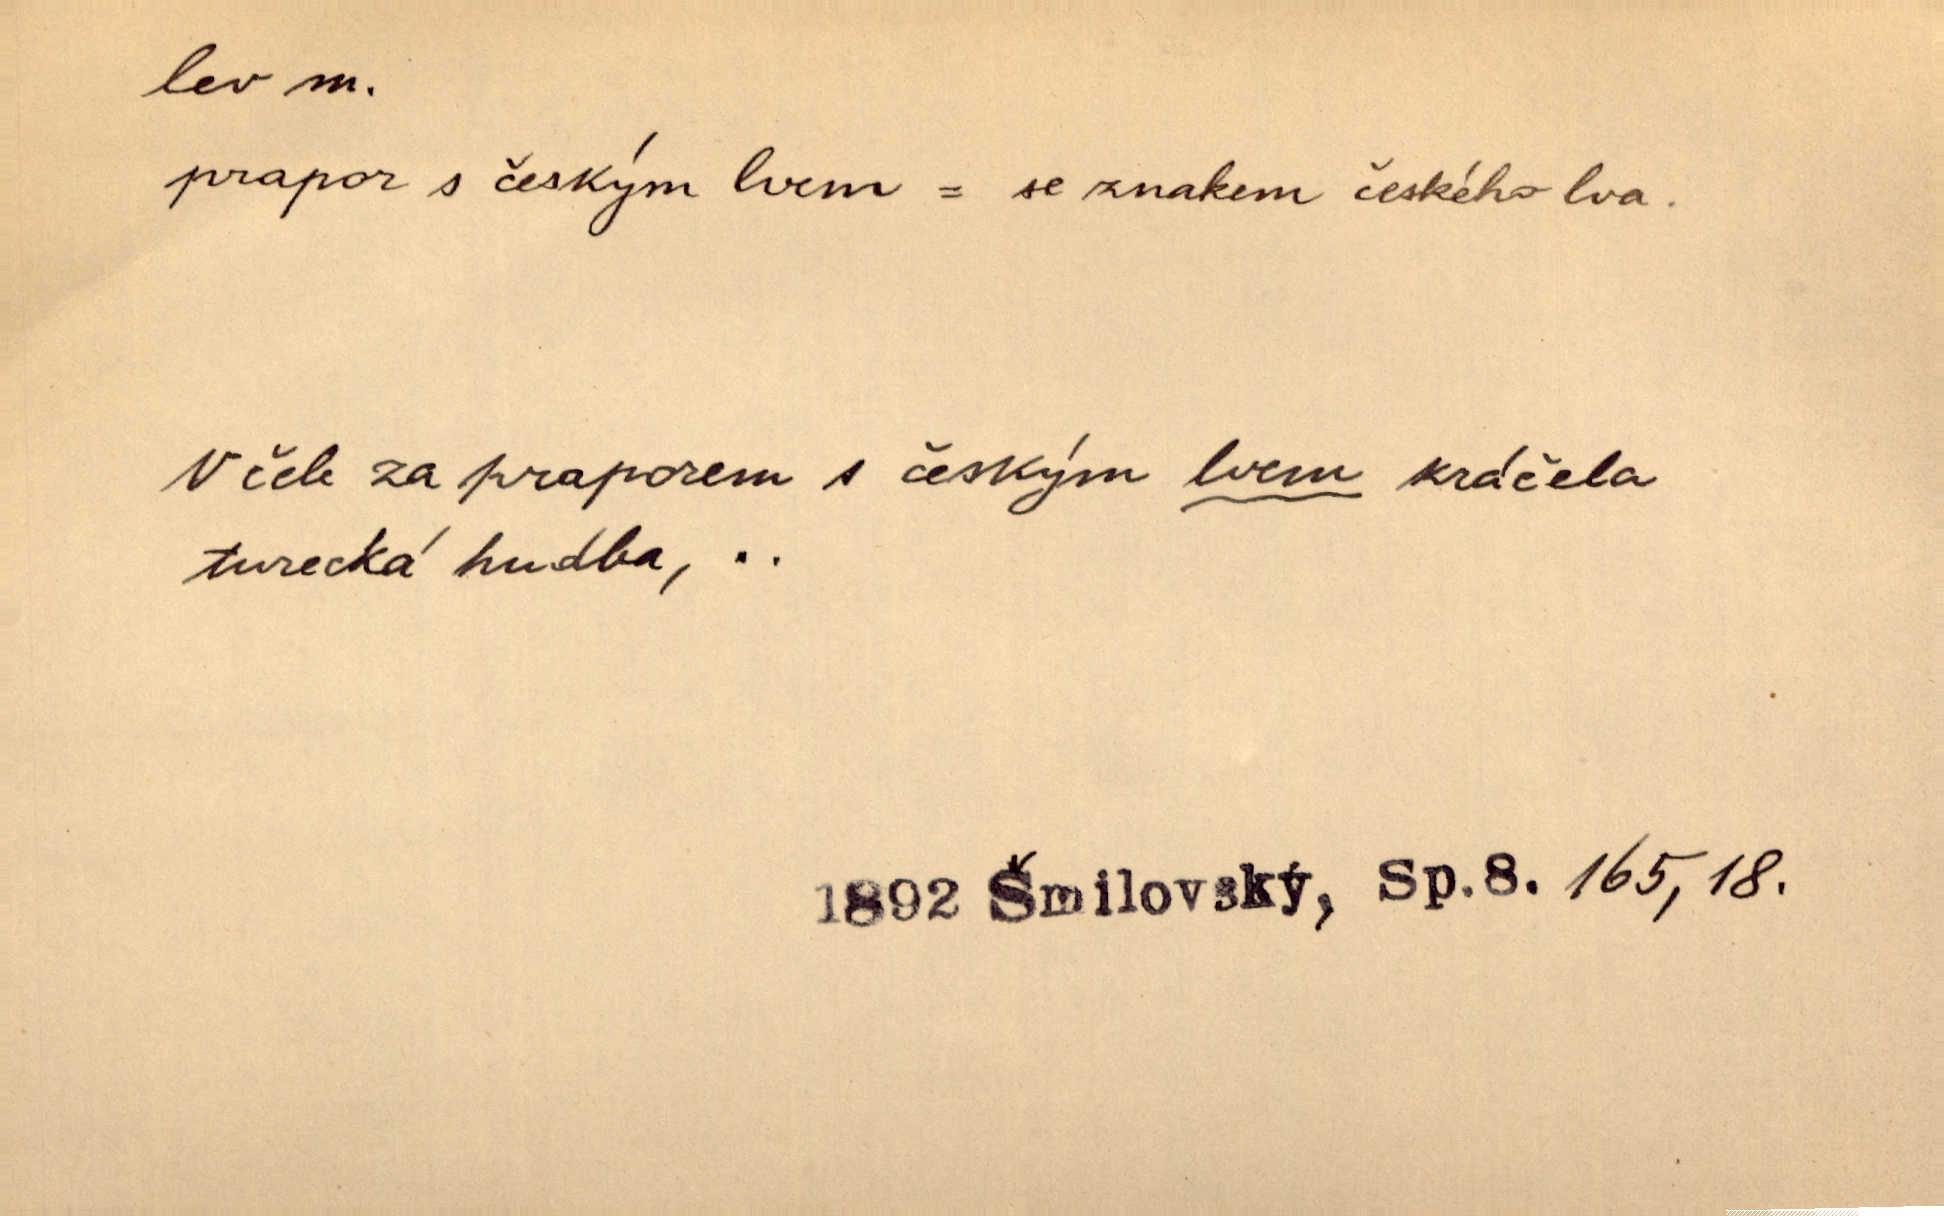 lev m.
prapor s českým lvem = se znakem českého lva.
V čele za praporem s českým lvem kráčela
turecká hudba, ..
1892 Šmilovský, Sp.8. 165, 18.